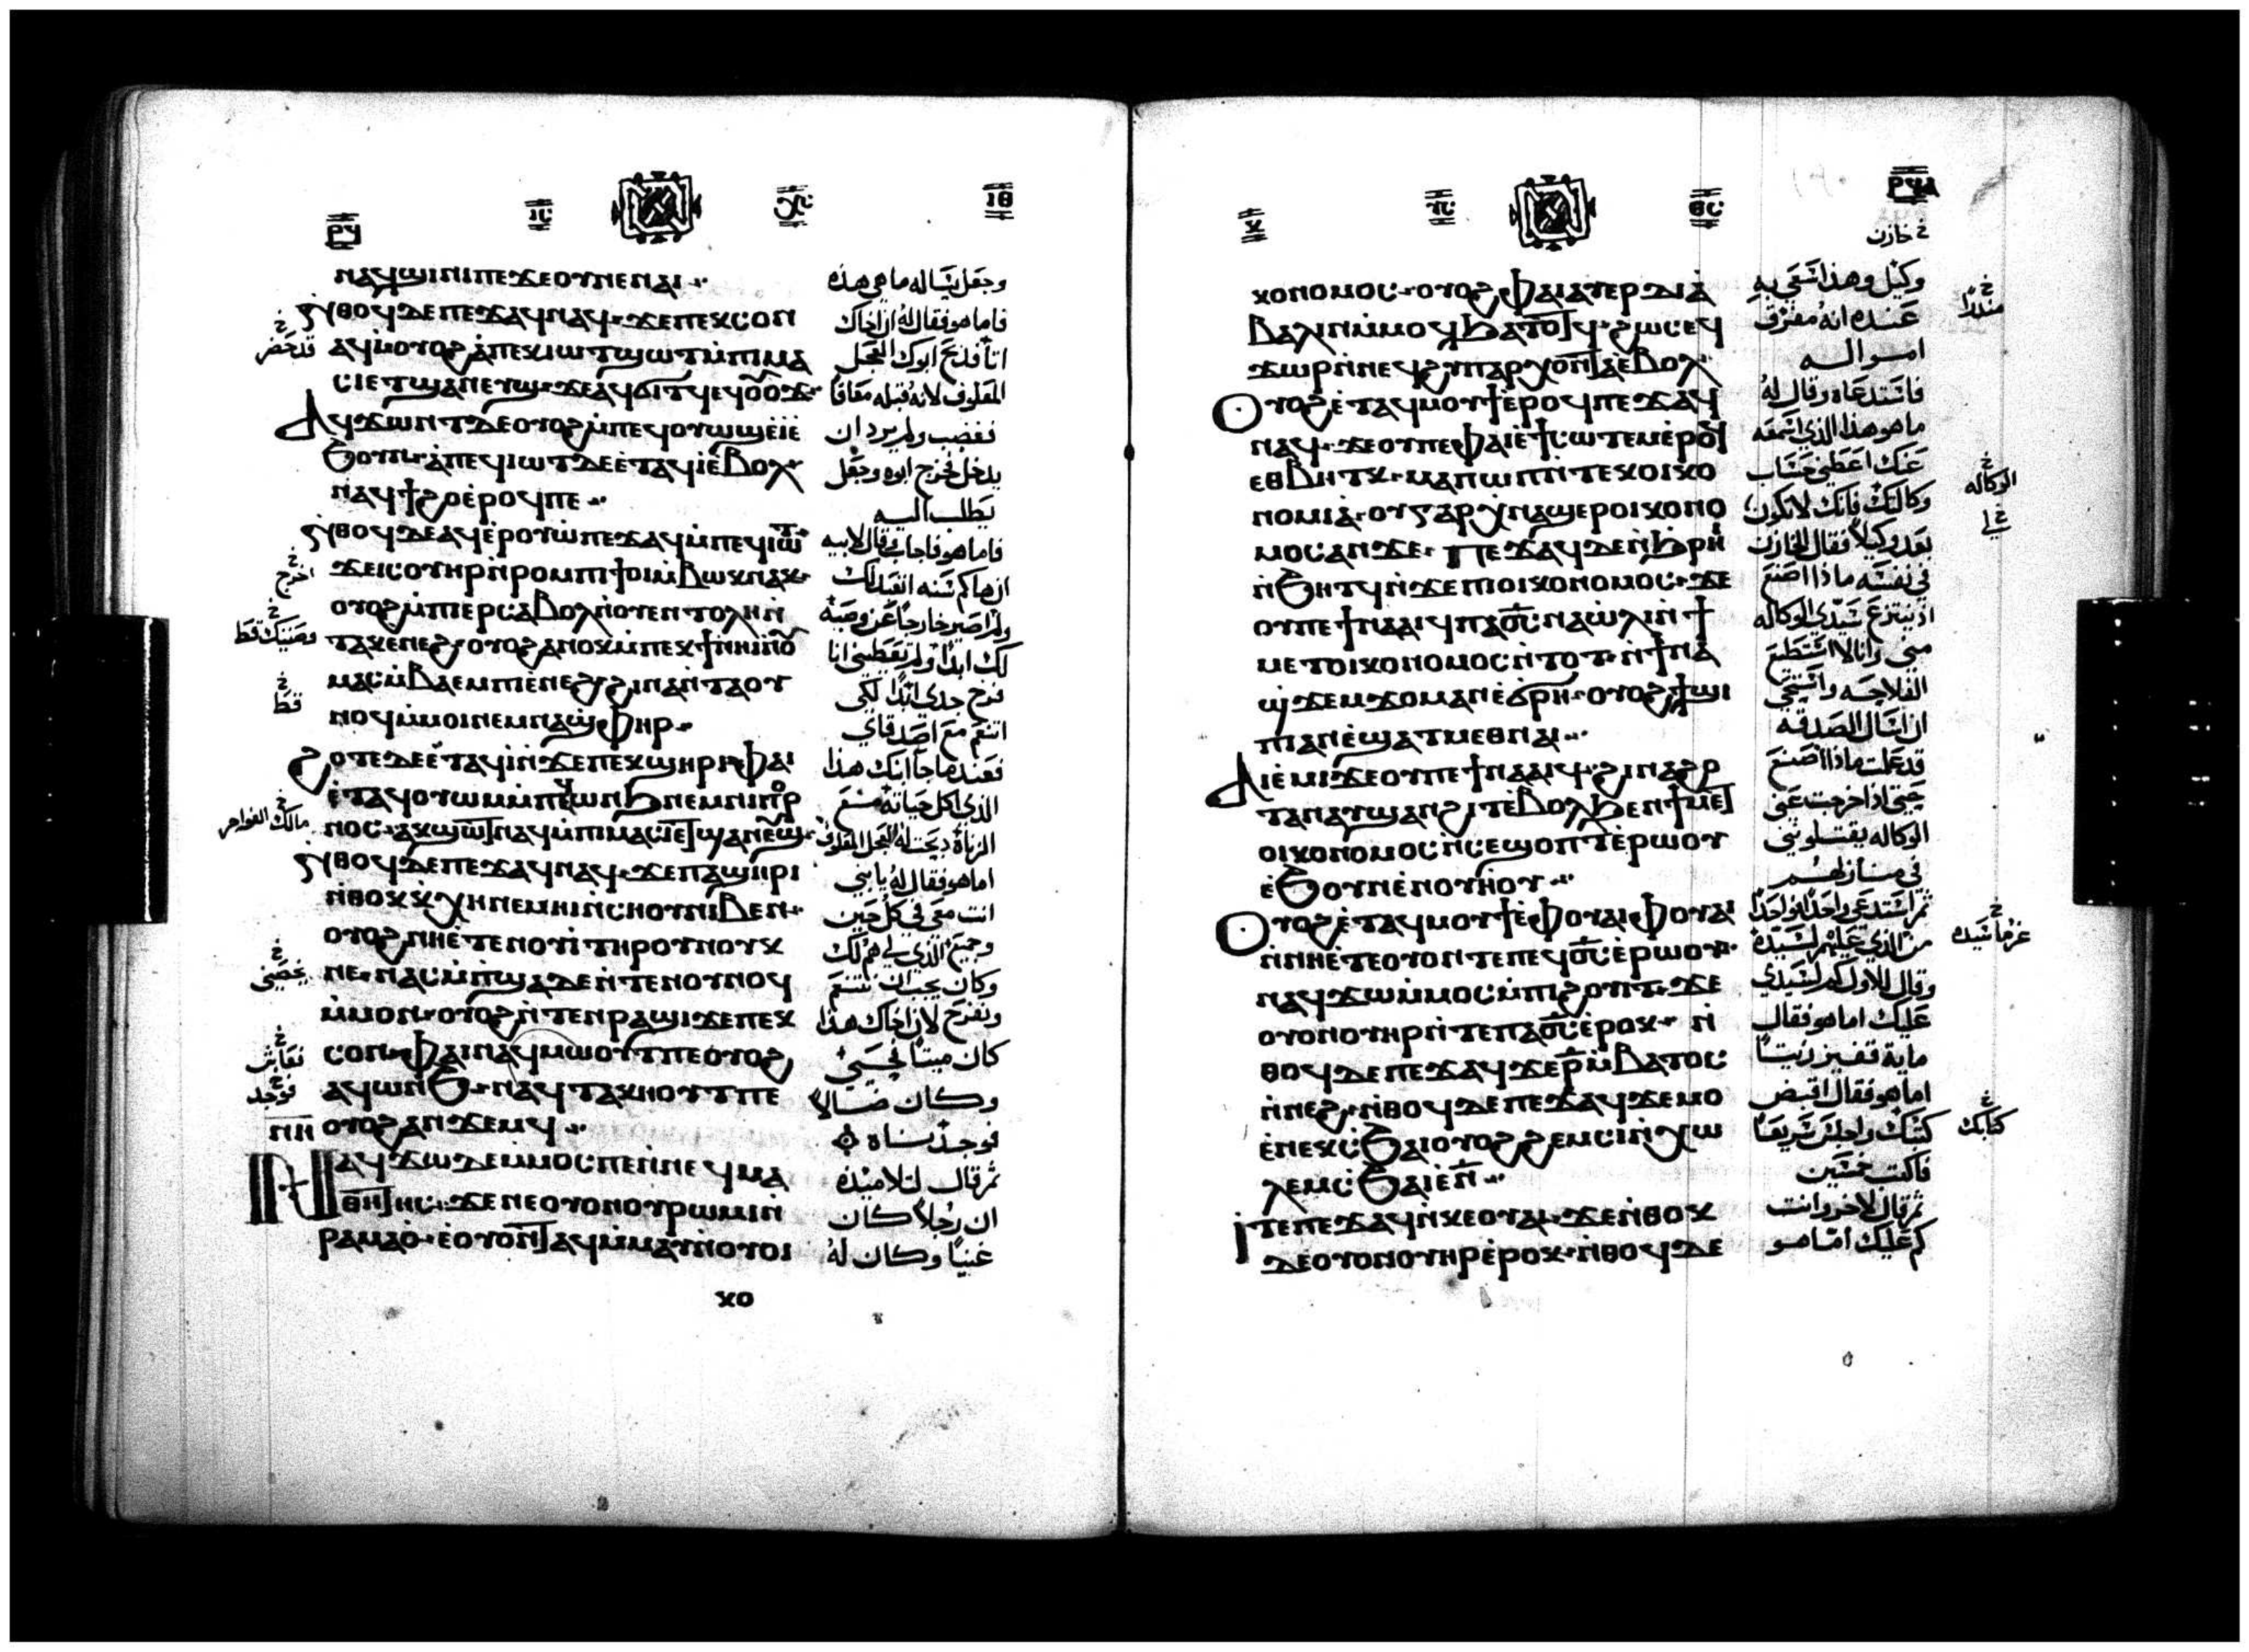 ⲛⲁϥϣⲓⲛⲓ ⲡⲉ ϫⲉ ⲟⲩ ⲛⲉ ⲛⲁⲓ
ⲛ̀ⲑⲟϥ ⲇⲉ ⲡⲉϫⲁϥ ⲛⲁϥ ϫⲉ ⲡⲉⲕⲥⲟⲛ
ⲥⲓ ⲉⲧϣⲁⲛⲉⲩϣ ϫⲉ ⲁϥϭⲓⲧϥ
ⲁϥϫⲱⲛⲧ ⲇⲉ ⲟⲩⲟϩ ⲙ̀ⲡⲉϥⲟⲩⲱϣ ⲉ̀ⲓ̀ ⲉ̀
ϧⲟⲩⲛ ⲁ̀ⲡⲉϥⲓⲱⲧ ⲇⲉ ⲉ̀ⲧⲁϥⲓ̀ ⲉ̀ⲃⲟⲗ
ⲛⲁϥϯϩⲟ ⲉ̀ⲣⲟϥ ⲡⲉ
ⲛ̀ⲑⲟϥ ⲇⲉ ⲁϥⲉ̀ⲣⲟⲩⲱ̀ ⲡⲉϫⲁϥ ⲙ̀ⲡⲉϥⲓⲱⲧ
ϫⲉ ⲓⲥ ⲟⲩⲏⲣ ⲛ̀ⲣⲟⲙⲡⲓ ϯⲟⲓ ⲙ̀ⲃⲱⲕ ⲛⲁⲕ
ⲟⲩⲟϩ ⲙ̀ⲡⲓⲉⲣⲥⲁⲃⲟⲗ ⲛ̀ⲟⲩⲉⲛⲧⲟⲗⲏ ⲛ̀
ⲧⲁⲕ ⲉⲛⲉϩ ⲟⲩⲟϩ ⲁⲛⲟⲕ ⲙ̀ⲡⲉⲕϯ ⲛⲏⲓ
ⲙⲁⲥ ⲙ̀ⲃⲁⲉⲙⲡⲓ ⲉ̀ⲛⲉϩ ϩⲓⲛⲁ ⲛ̀ⲧⲁⲟⲩ
ⲛⲟϥ ⲙ̀ⲙⲟⲓ ⲛⲉⲙ ⲛⲁϣⲫⲏⲣ
ϩⲟⲧⲉ ⲇⲉ ⲉ̀ⲧⲁϥⲓ̀ ⲛ̀ϫⲉ ⲡⲉⲕϣⲏⲣⲓ ⲫⲁⲓ
ⲛ̀ⲑⲟϥ ⲇⲉ ⲡⲉϫⲁϥ ⲛⲁϥ ϫⲉ ⲡⲁϣⲏⲣⲓ
ⲛ̀ⲑⲟⲕ ⲕ̀ⲭⲏ ⲛⲉⲙⲏⲓ ⲛ̀ⲥⲏⲟⲩ ⲛⲓⲃⲉⲛ
ⲟⲩⲟϩ ⲛⲏⲉ̀ⲧⲉⲛⲟⲩⲓ̀ ⲧⲏⲣⲟⲩ ⲛⲟⲩⲕ
ⲛⲉ ⲛⲁⲥⲙ̀ⲡϣⲁ ⲇⲉ ⲛ̀ⲧⲉⲛⲟⲩⲛⲟϥ
ⲙ̀ⲙⲟⲛ ⲟⲩⲟϩ ⲛ̀ⲧⲉⲛⲣⲁϣⲓ ϫⲉ ⲡⲉⲕ
ⲥⲟⲛ ⲫⲁⲓ ⲛⲁϥⲙⲱⲟⲩⲧ ⲡⲉ ⲟⲩⲟϩ
ⲁϥⲱⲛϧ ⲛⲁϥⲧⲁⲕⲏⲟⲩⲧ ⲡⲉ
ⲟⲩⲟϩ ⲁⲛϫⲉⲙϥ
ⲛⲁϥϫⲱ ⲇⲉ ⲙ̀ⲙⲟⲥ ⲡⲉ ⲛ̀ⲛⲉϥⲙⲁ
ⲑⲏⲧⲏⲥ ϫⲉ ⲛⲉ ⲟⲩⲟⲛ ⲟⲩⲣⲱⲙⲓ ⲛ̀
ⲣⲁⲙⲁⲟ̀ ⲉ̀ⲟⲩⲟⲛⲧⲁϥ ⲙ̀ⲙⲁⲩ ⲛ̀ⲟⲩⲟⲓ
ⲕⲟ
وجعل يساله ما هي هذه
فاما هو فقال له ان اخاك
اتا فذبح ابوك العجل
المعلوف لانه قبله معافا
فغضب ولم يرد ان
يدخل فخرج ابوه وجعل
يطلب اليه
فاما هو فاجاب وقال لابيه
ان هاكم سنه اتعبد لك
ولم اصير خارجا عن وصية
لك ابدا ولم تعطيني انا
فرخ جدي ابدا لكي
اتنعم مع اصدقاي
فعندما جا ابنك هذا
الذي اكل حياته مع
اما هو فقال له يا بني
انت معي في كل حين
وجميع الذي لي هم لك
وكان يجب ان نتنعم
ونفرح لان اخاك هذا
كان ميتا فحيي
وكان ضالا
فوجدناه
ثم قال لتلاميذه
ان رجلا كان
غنيا وكان له
ⲕⲟⲛⲟⲙⲟⲥ ⲟⲩⲟϩ ⲫⲁⲓ ⲁⲩⲉⲣⲇⲓⲁ̀
ⲃⲁⲗⲓⲛ ⲙ̀ⲙⲟϥ ϧⲁⲧⲟⲧϥ ϩⲱⲥ ⲉϥ
ϫⲱⲣ ⲛ̀ⲛⲉϥϩⲩⲡⲁⲣⲭⲟⲛⲧⲁ ⲉ̀ⲃⲟⲗ
ⲟⲩⲟϩ ⲉ̀ⲧⲁϥⲙⲟⲩϯ ⲉ̀ⲣⲟϥ ⲡⲉϫⲁϥ
ⲛⲁϥ ϫⲉ ⲟⲩ ⲡⲉ ⲫⲁⲓ ⲉ̀ϯⲥⲱⲧⲉⲙ ⲉ̀ⲣⲟϥ
ⲉⲑⲃⲏⲧⲕ ⲙⲁ ⲡⲱⲡ ⲛ̀ⲧⲉⲕⲟⲓⲕⲟ
ⲛⲟⲙⲓⲁ̀ ⲟⲩ ⲅⲁⲣ ⲭ̀ⲛⲁϣⲉⲣⲟⲓⲕⲟⲛⲟ
ⲙⲟⲥ ⲁⲛ ϫⲉ ⲡⲉϫⲁϥ ⲇⲉ ⲛ̀ϧⲣⲏⲓ
ⲛ̀ϧⲏⲧϥ ⲛ̀ϫⲉ ⲡⲓⲟⲓⲕⲟⲛⲟⲙⲟⲥ ϫⲉ
ⲟⲩ ⲡⲉ ϯⲛⲁⲁⲓϥ ⲡⲁϭⲥ ⲛⲁⲱ̀ⲗⲓ ⲛ̀ϯ
ⲙⲉⲧⲟⲓⲕⲟⲛⲟⲙⲟⲥ ⲛ̀ⲧⲟⲧ ⲛ̀ϯⲛⲁ
ϣϫⲉⲙϫⲟⲙ ⲁⲛ ⲉ̀ϭⲣⲏ ⲟⲩⲟϩ ϯϣⲓ
ⲡⲓ ⲁⲛ ⲉ̀ϣⲁⲧⲙⲉⲑⲛⲁⲓ
ⲁⲓⲉ̀ⲙⲓ ϫⲉ ⲟⲩ ⲡⲉ ϯⲛⲁⲁⲓϥ ϩⲓⲛⲁ ϩⲟ
ⲧⲁⲛ ⲁⲩϣⲁⲛϩⲓⲧ ⲉ̀ⲃⲟⲗ ϧⲉⲛ ϯⲙⲉⲧ
ⲟⲓⲕⲟⲛⲟⲙⲟⲥ ⲛ̀ⲥⲉϣⲟⲡⲧ ⲉ̀ⲣⲱⲟⲩ
ⲉ̀ϧⲟⲩⲛ ⲉ̀ⲛⲟⲩⲏⲟⲩ
ⲟⲩⲟϩ ⲉ̀ⲧⲁϥⲙⲟⲩϯ ⲉ̀ⲫⲟⲩⲁⲓ ⲫⲟⲩⲁⲓ
ⲛ̀ⲛⲏⲉ̀ⲧⲉ ⲟⲩⲟⲛ ⲧⲉ ⲡⲉϥϭⲥ ⲉ̀ⲣⲱⲟⲩ
ⲛⲁϥϫⲱ ⲙ̀ⲙⲟⲥ ⲙ̀ⲡⲓϩⲟⲩⲓⲧ ϫⲉ
ⲟⲩⲟⲛ ⲟⲩⲏⲣ ⲛ̀ⲧⲉ ⲡⲁϭⲥ ⲉ̀ⲣⲟⲕ ⲛ̀
ⲑⲟϥ ⲇⲉ ⲡⲉϫⲁϥ ϫⲉ ⲣ̅ ⲙ̀ⲃⲁⲧⲟⲥ
ⲛ̀ⲛⲉϩ ⲛ̀ⲑⲟϥ ⲇⲉ ⲡⲉϫⲁϥ ϫⲉ ⲙⲟ
ⲉ̀ⲛⲉⲕⲥ̀ϧⲁⲓ ⲟⲩⲟϩ ϩⲉⲙⲥⲓ ⲛ̀ⲭⲱ
ⲗⲉⲙ ⲥ̀ϧⲁⲓ ⲉ̀ⲛ̅
ⲓⲧⲉ ⲡⲉϫⲁϥ ⲛ̀ⲕⲉⲟⲩⲁⲓ ϫⲉ ⲛ̀ⲑⲟⲕ
ⲇⲉ ⲟⲩⲟⲛ ⲟⲩⲏⲣ ⲉ̀ⲣⲟⲕ ⲛ̀ⲑⲟϥ ⲇⲉ
خازن
وكيل وهذا سعي به
عنده انه مفرق
امواله
فاستدعاه وقال له
ما هو هذا الذي اسمعه
عنك اعطني حساب
وكالتك فانك لا تكون
بعد وكيلا فقال الخازن
في نفسه ماذا اصنع
اذ ينتزع سيدي الوكاله
مني وانا لا استطيع
الفلاحه واستحي
ان اسال الصدقه
قد علمت ماذا اصنع
حتي اذا اخرجت عن
الوكاله يقبلوني
في منازلهم
ثم استدعي واحدا واحدا
من الذي عليهم لسيده
وقال للاول كم لسيدي
عليك اما هو فقال
ماية قفيز زيتا
اما هو فقال اقبض
كتبك واجلس سريعا
فاكتب خمسين
ثم قال لاخر وانت
كم عليك اما هو
الوكاله
كتابك